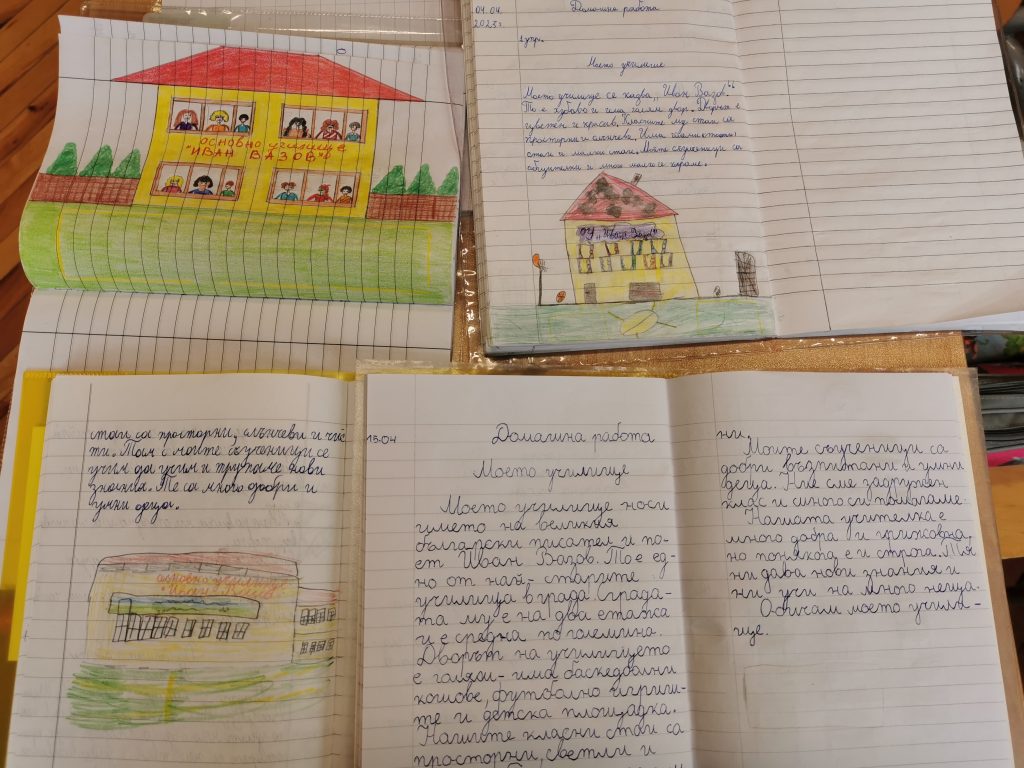 основно училище
"ИВАН ВАЗОВ"
04.04.
2023г.
Домашна работа
1 упр.
Моето училище
Моето училище се казва „Иван Вазов“.
То е хубаво и има голям двор. Дворът е
цветен и красив. Класните му стаи са
просторни и слънчеви. Има
стаи и малки стаи. Мойте съученици са
и много
ОУ „Иван Вазов“
стаи са просторни, слънчеви и чис
ти. Там с моите съученици се
учим да учим и трупаме нови
знания. Те са много добри и
умни деца.
основно училище
"Иван Вазов"
15.04
Домашна работа
Моето училище
Моето училище носи
името на великия
български писател и по-
ет Иван Вазов. То е ед-
но от най-старите
училища в града. Сграда-
та му е на два етажа
и е средна по големина.
Дворът на училището
е голям- има баскедболни
кошове, футболно игрищ-
те и детска площадка.
Нашите класни стаи са
просторни, светли и
ни.
Моите съученици са
добри възпитани и умни
деца. Ние сме задружен
клас и много си помагаме.
Нашата учителка е
много добра и грижовна,
но понякога е и строга. Тя
ни дава нови знания и
ни учи на много неща.
Обичам моето учили-
ще.